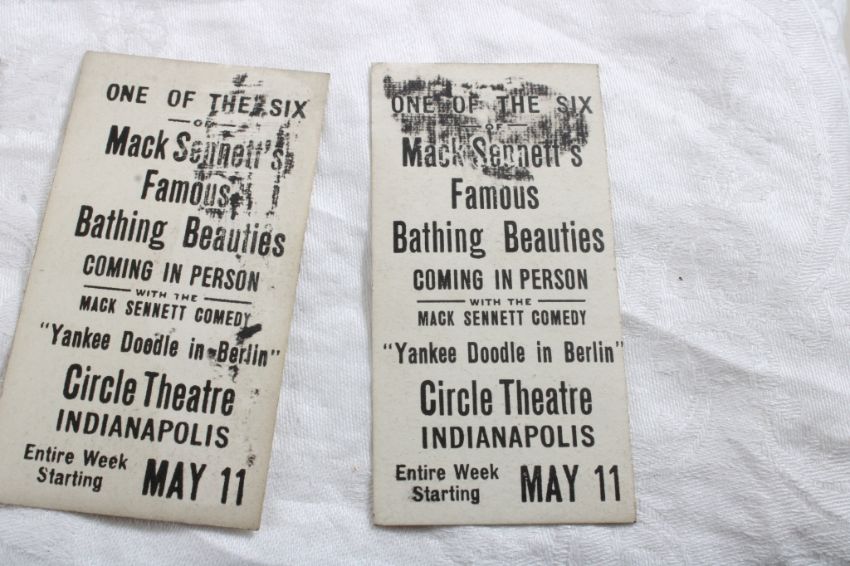 ONE OF THE SIX
OF
Mack Sennett's
Famous
Bathing Beauties
COMING IN PERSON
WITH THE
MACK SENNETT COMEDY
"Yankee Doodle in Berlin"
Circle Theatre
INDIANAPOLIS
Entire Week
Starting MAY 11
ONE OF THE SIX
OF
Mack Sennett's
Famous
Bathing Beauties
COMING IN PERSON
WITH THE
MACK SENNETT COMEDY
"Yankee Doodle in Berlin"
Circle Theatre
INDIANAPOLIS
Entire Week
Starting MAY 11